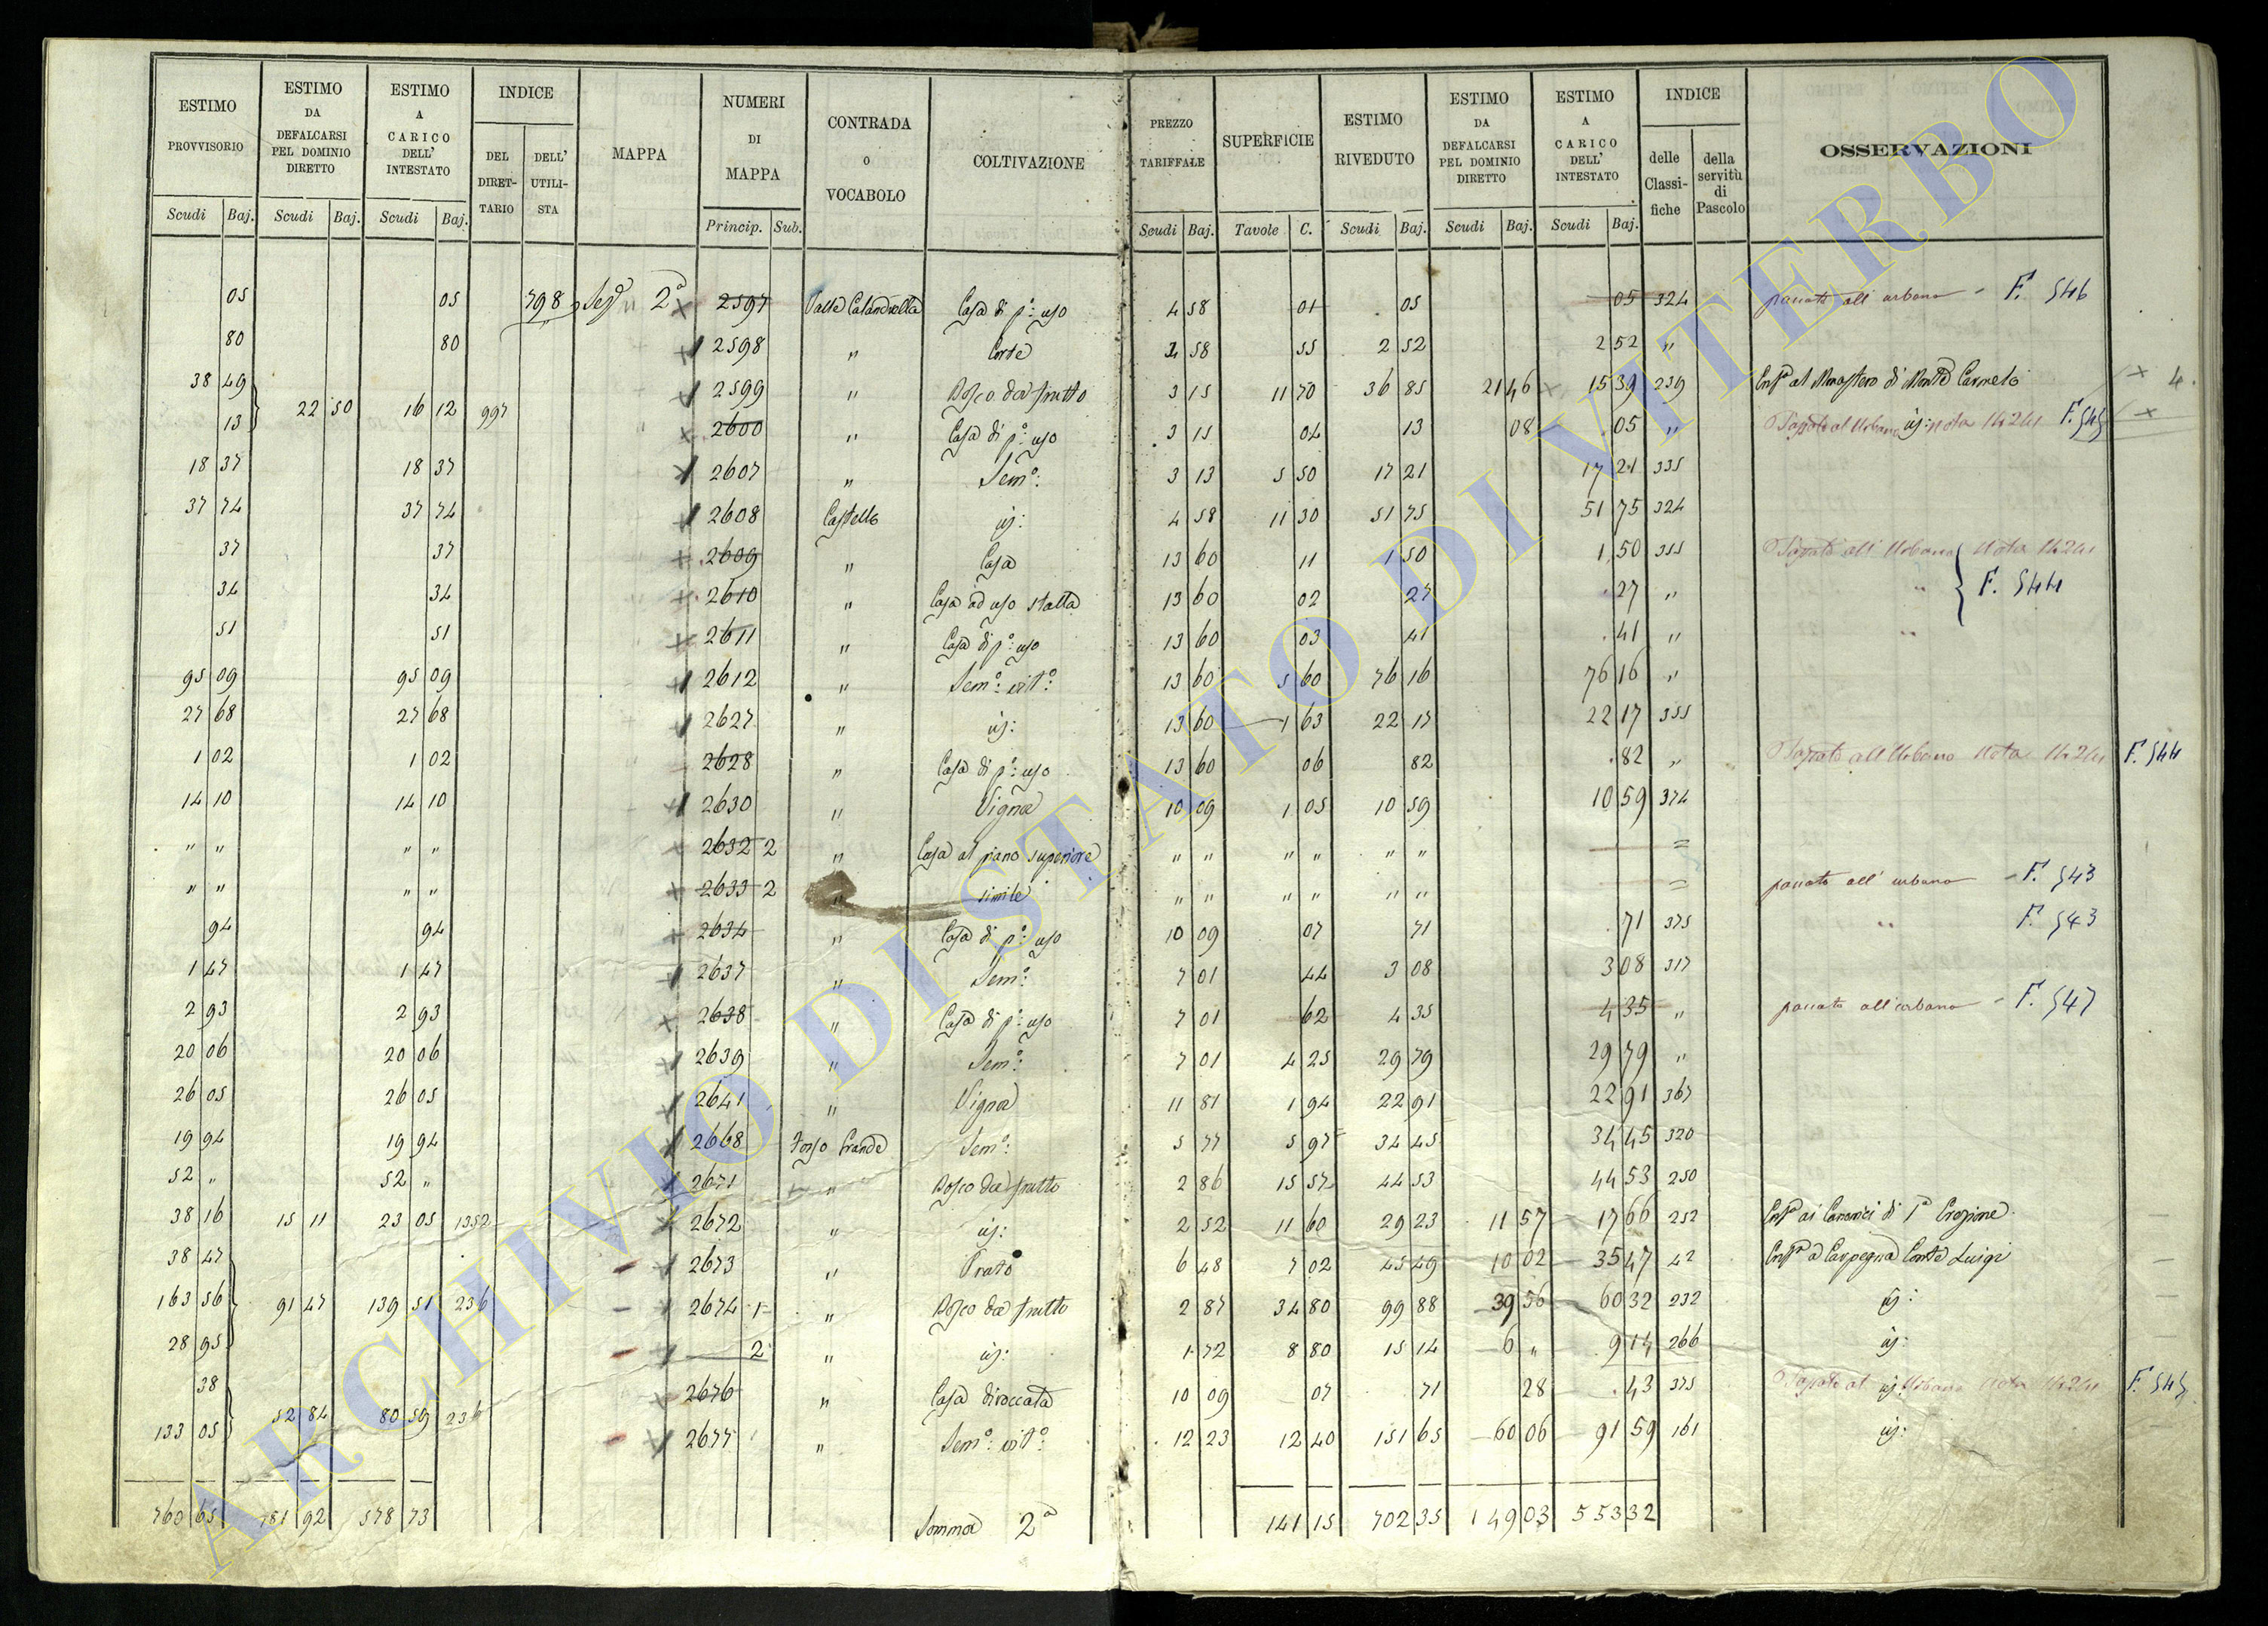 ESTIMO PROVVISORIO | ESTIMO DA DEFALCARSI PEL DOMINIO DIRETTO | ESTIMO A CARICO DELL' INTESTATO | INDICE | MAPPA | NUMERI DI MAPPA | CONTRADA O VOCABOLO | COLTIVAZIONE | PREZZO TARIFFALE | SUPERFICIE | ESTIMO RIVEDUTO | ESTIMO DA DEFALCARSI PEL DOMINIO DIRETTO | ESTIMO A CARICO DELL' INTESTATO | INDICE | OSSERVAZIONI
DEL DIRETTARIO | DELL' UTILISTA | delle Classifiche | della servitù di Pascolo
Scudi | Baj. | Scudi | Baj. | Scudi | Baj. | Princip. | Sub. | Scudi | Baj. | Tavole | C. | Scudi | Baj. | Scudi | Baj. | Scudi | Baj.
05 | 05 | 798 | 2ª | 2597 | Casa di pº: uso | 4 58 | 01 | 05 | 05 | 324 | passato all' urbano - F. 546
80 | 80 | 2598 | " | Corte | 4 58 | 55 | 2 52 | 2 52 | "
38 49 | 2599 | " | Bosco da frutto | 3 15 | 11 70 | 36 85 | 21 46 | 15 39 | 239 | al Monastero di Monte Carmelo | 4.
13 | 22 50 | 16 12 | 997 | 2600 | " | Casa di pº: uso | 3 15 | 04 | 13 | 08 | 05 | " | F. 545
18 37 | 18 37 | 2607 | " | Semº: | 3 13 | 5 50 | 17 21 | 17 21 | 335
37 74 | 37 74 | 2608 | Castello | id: | 4 58 | 11 30 | 51 75 | 51 75 | 324
37 | 37 | 2609 | " | Casa | 13 60 | 11 | 1 50 | 1 50 | 355
34 | 34 | 2610 | " | Casa ad uso stalla | 13 60 | 02 | 27 | 27 | " | " | F. 544
51 | 51 | 2611 | " | Casa di pº: uso | 13 60 | 03 | 41 | 41 | " | "
95 09 | 95 09 | 2612 | " | Semº: vitº: | 13 60 | 5 60 | 76 16 | 76 16 | "
27 68 | 27 68 | 2627 | " | id: | 13 60 | 1 63 | 22 17 | 22 17 | 355
1 02 | 1 02 | 2628 | " | Casa di pº: uso | 13 60 | 06 | 82 | 82 | " | F. 544
14 10 | 14 10 | 2630 | " | Vigna | 10 09 | 1 05 | 10 59 | 10 59 | 374
" " | " " | 2632 2 | " | Casa al piano superiore | " " | " " | " " | =
" " | " " | 2633 2 | " | simile | " " | " " | " " | = | passato all' urbano - F. 543
94 | 94 | 2634 | " | Casa di pº: uso | 10 09 | 07 | 71 | 71 | 375 | " | F. 543
1 47 | 1 47 | 2637 | " | Semº: | 7 01 | 44 | 3 08 | 3 08 | 317
2 93 | 2 93 | 2638 | " | Casa di pº: uso | 7 01 | 62 | 4 35 | 4 35 | " | passato all' urbano - F. 547
20 06 | 20 06 | 2639 | " | Semº: | 7 01 | 4 25 | 29 79 | 29 79 | "
26 05 | 26 05 | 2641 | " | Vigna | 11 81 | 1 94 | 22 91 | 22 91 | 367
19 94 | 19 94 | 2668 | Fosso Grande | Semº: | 5 77 | 5 97 | 34 45 | 34 45 | 320
52 " | 52 " | 2671 | " | Bosco da frutto | 2 86 | 15 57 | 44 53 | 44 53 | 250
38 16 | 15 11 | 23 05 | 1352 | 2672 | " | id: | 2 52 | 11 60 | 29 23 | 11 57 | 17 66 | 252 | ai Canonici di 1ª Erezione
38 47 | 2673 | " | Prato | 6 48 | 7 02 | 45 49 | 10 02 | 35 47 | 42 | a Carpegna Conte Luigi
163 56 | 91 47 | 139 51 | 236 | 2674 1 | " | Bosco da frutto | 2 87 | 34 80 | 99 88 | 39 56 | 60 32 | 232 | id:
28 95 | 2 | " | id: | 1 72 | 8 80 | 15 14 | 6 " | 9 14 | 266 | id:
38 | 2676 | " | Casa diroccata | 10 09 | 07 | 71 | 28 | 43 | 375 | id: | F. 545
133 05 | 52 84 | 80 59 | 236 | 2677 | " | Semº: vitº: | 12 23 | 12 40 | 151 65 | 60 06 | 91 59 | 161 | id:
760 65 | 181 92 | 578 73 | Somma 2ª | 141 15 | 702 35 | 149 03 | 553 32
ARCHIVIO DI STATO DI VITERBO